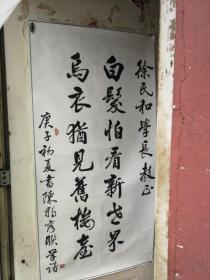 徐民和學長教正
白髮怕看新世界
烏衣猶見舊樓臺
庚子初夏書陳獨秀聯 學詩